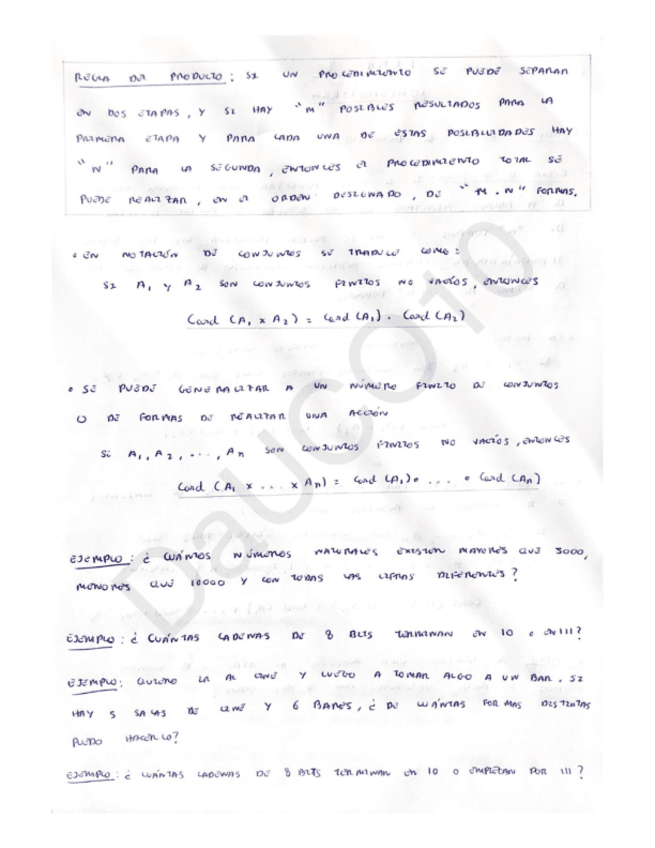 REGLA DEL PRODUCTO: SI UN PROCEDIMIENTO SE PUEDE SEPARAR
EN DOS ETAPAS, Y SI HAY "M" POSIBLES RESULTADOS PARA LA
PRIMERA ETAPA Y PARA CADA UNA DE ESTAS POSIBILIDADES HAY
"N" PARA LA SEGUNDA, ENTONCES EL PROCEDIMIENTO TOTAL SE
PUEDE REALIZAR, EN EL ORDEN DESIGNADO, DE "M.N" FORMAS.
• EN NOTACIÓN DE CONJUNTOS SE TRADUCE COMO:
SI A₁ Y A₂ SON CONJUNTOS FINITOS NO VACÍOS, ENTONCES
Card (A₁ x A₂) = Card (A₁) . Card (A₂)
• SE PUEDE GENERALIZAR A UN NÚMERO FINITO DE CONJUNTOS
O DE FORMAS DE REALIZAR UNA ACCIÓN
Si A₁, A₂, ..., An SON CONJUNTOS FINITOS NO VACÍOS, ENTONCES
Card (A₁ x ... x An) = Card (A₁) • ... • Card (An)
EJEMPLO: ¿CUÁNTOS NÚMEROS NATURALES EXISTEN MAYORES QUE 3000,
MENORES QUE 10000 Y CON TODAS LAS CIFRAS DIFERENTES?
EJEMPLO: ¿CUÁNTAS CADENAS DE 8 BITS TERMINAN EN 10 O EN 111?
EJEMPLO: QUIERO IR AL CINE Y LUEGO A TOMAR ALGO A UN BAR. SI
HAY 5 SALAS DE CINE Y 6 BARES, ¿DE CUÁNTAS FORMAS DISTINTAS
PUEDO HACERLO?
EJEMPLO: ¿CUÁNTAS CADENAS DE 8 BITS TERMINAN EN 10 O EMPIEZAN POR 111?
DaUCO10